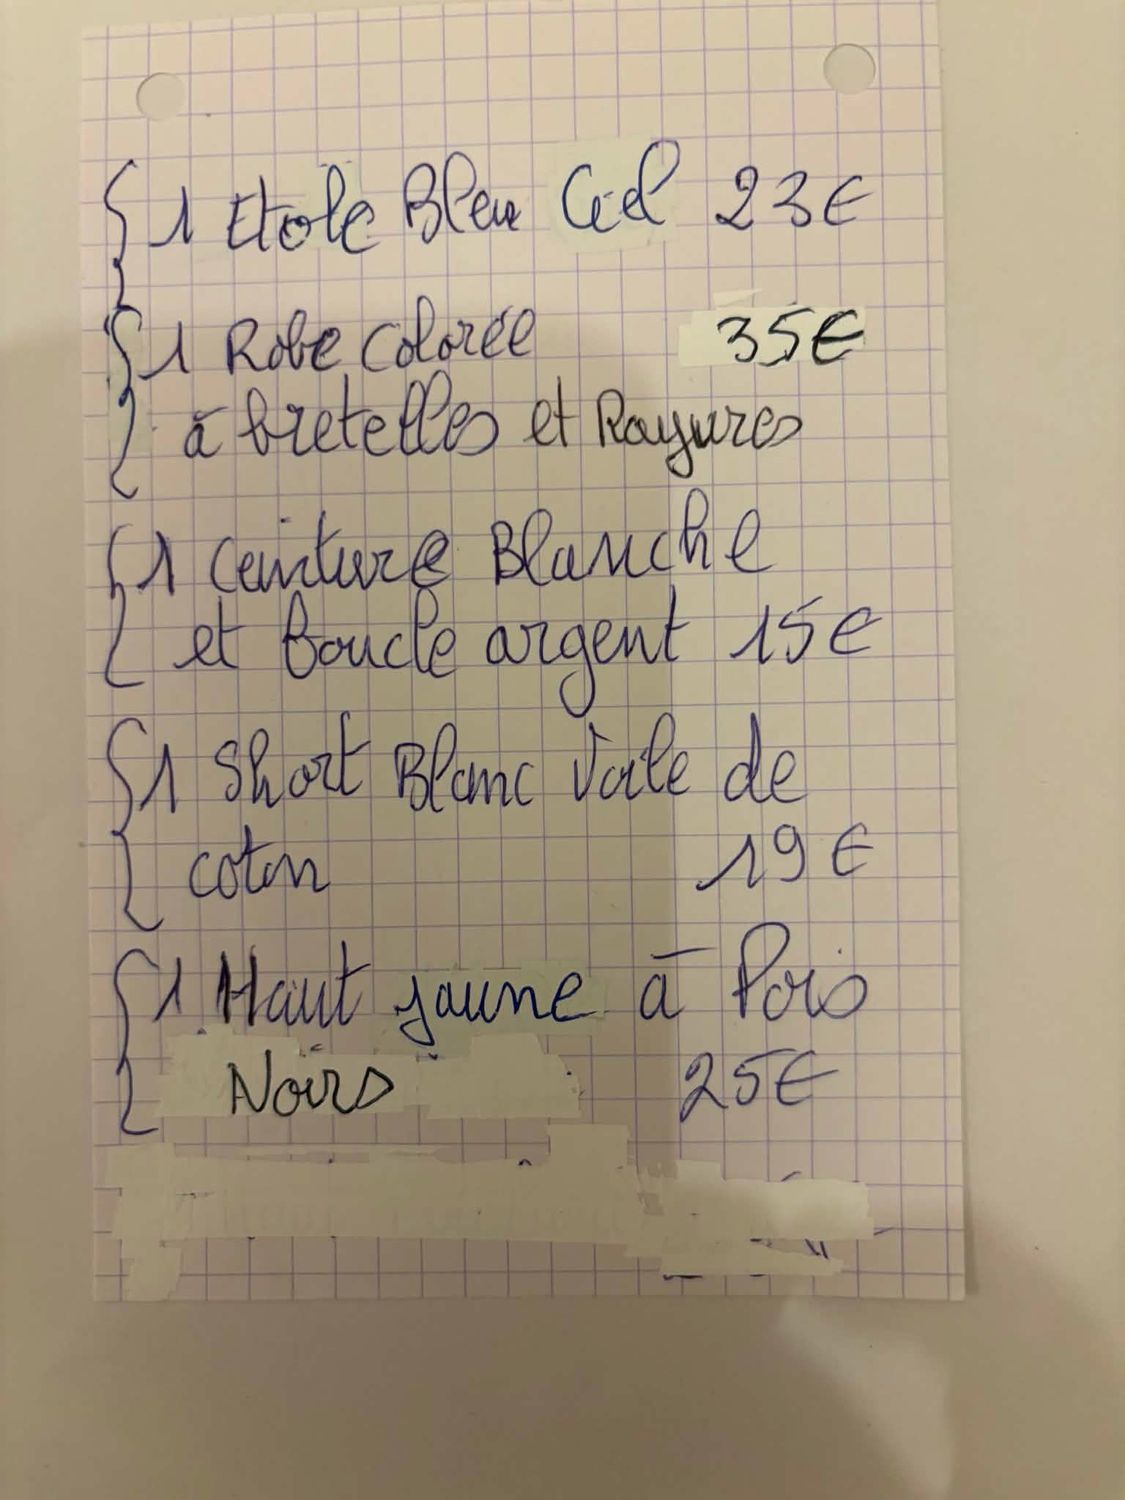 1 Etole Bleu Ciel 23€
1 Robe Colorée 35€
à bretelles et Rayures
1 Ceinture Blanche
et Boucle argent 15€
1 Short Blanc Voile de
coton 19€
1 Haut jaune à Pois
Noirs 25€